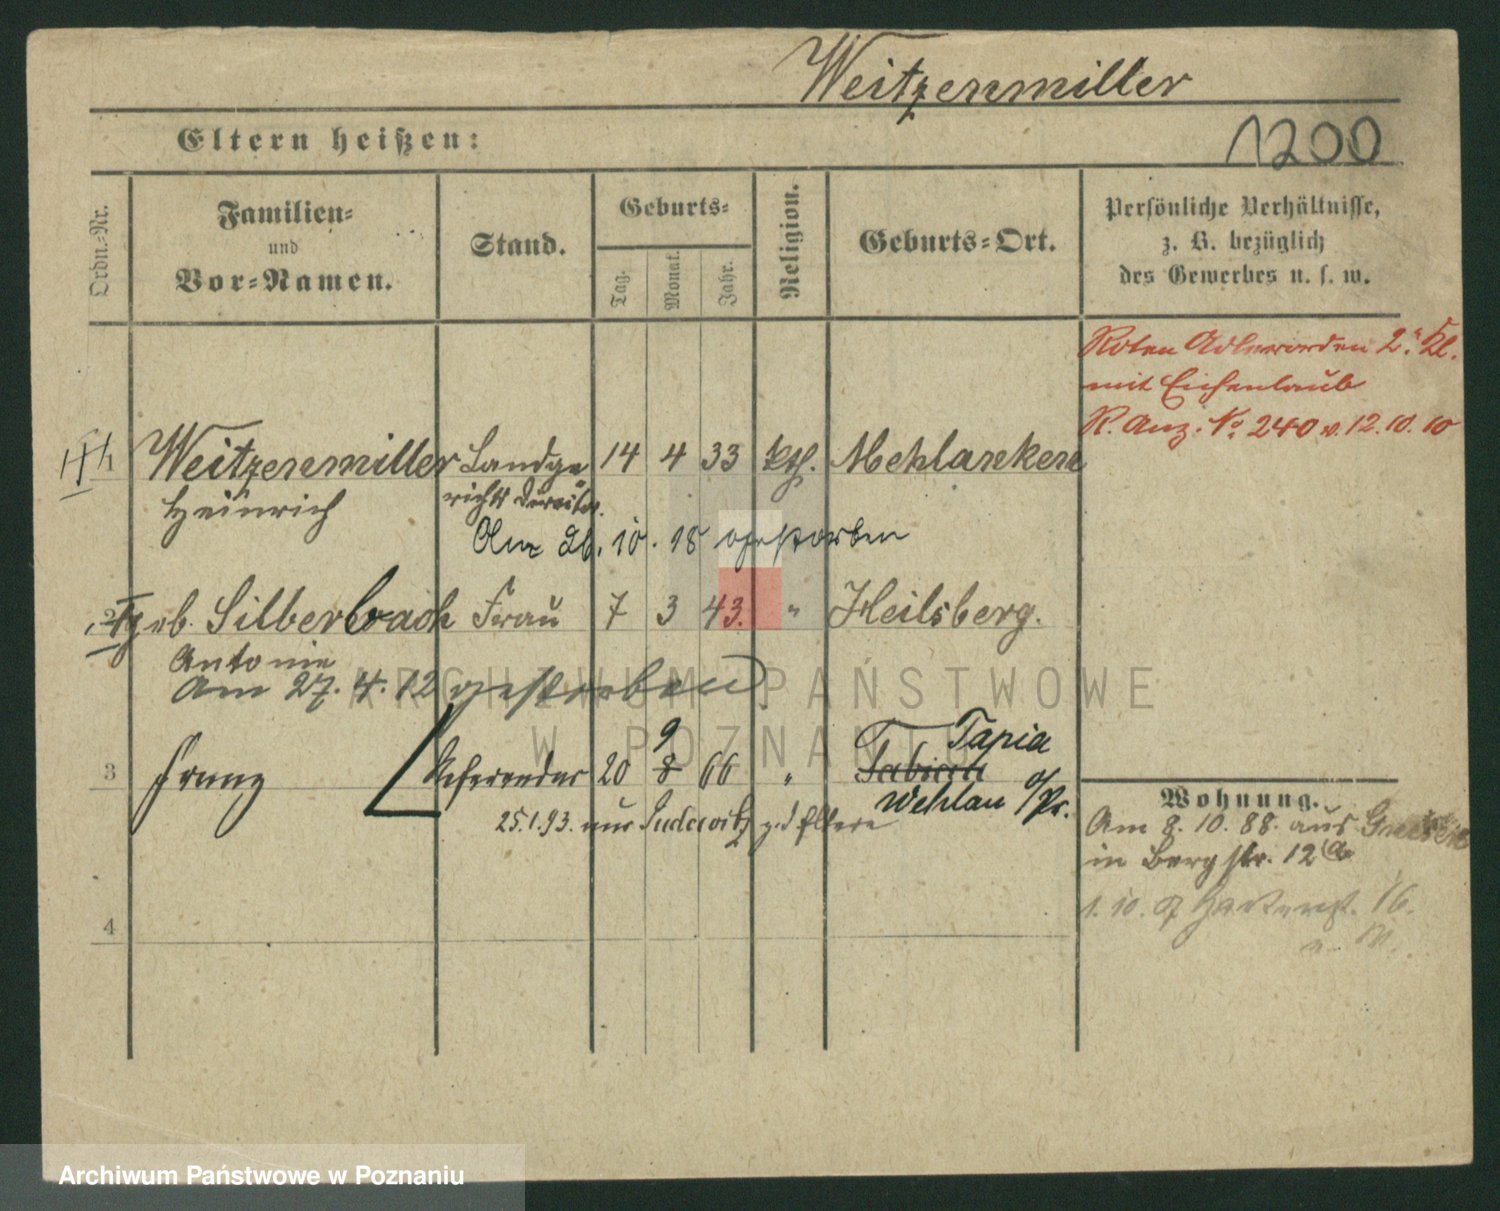 Weitzenmiller
Eltern heißen:
1200
Ordn.-Nr.
Familien-
und
Vor-Namen.
Stand.
Geburts-
Tag.
Monat.
Jahr.
Religion.
Geburts-Ort.
Persönliche Verhältnisse,
z. B. bezüglich
des Gewerbes u. s. w.
Roten Adlerorden 2. Kl.
mit Eichenlaub
R. Anz. No 240 v. 12.10.10
1 Weitzenmiller Landge 14 4 33 kth. Mehlanken
Heinrich richts
Am 26. 10. 18 gestorben
2 geb. Silberbach Frau 7 3 43. " Heilsberg.
Antonie
Am 27. 4. 12 gestorben
3 Franz Referendar 20 8 9 66 " Tabiau Tapia
Wehlau o/Pr.
25.1.93. z. d. Eltern
Wohnung.
Am 8. 10. 88. aus Gnesen
in Bergstr. 12a
1. 10. 16.
4
ARCHIWUM PAŃSTWOWE
W POZNANIU
Archiwum Państwowe w Poznaniu